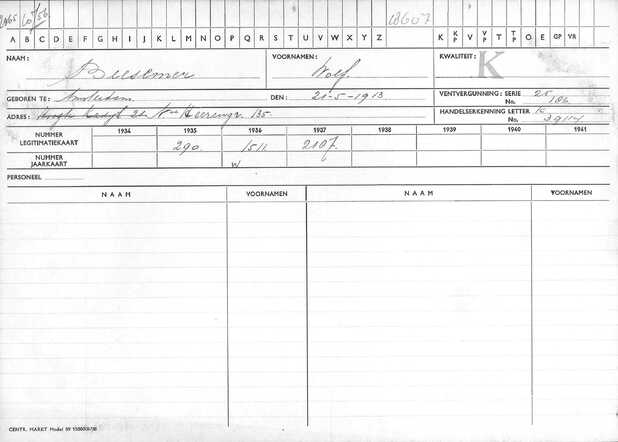 10/56 18607
A B C D E F G H I J K L M N O P Q R S T U V W X Y Z K K/P V V/P T T/P O E GP VR
NAAM: Beesemer VOORNAMEN: Wolf. KWALITEIT: K
GEBOREN TE: Amsterdam DEN: 21-5-1913 VENTVERGUNNING: SERIE 25
No. 106
ADRES: 2d. Nwe Heerengr. 135. HANDELSERKENNING LETTER K
No. 39114
1934 1935 1936 1937 1938 1939 1940 1941
NUMMER LEGITIMATIEKAART 290 1511 2107.
NUMMER JAARKAART W
PERSONEEL
NAAM VOORNAMEN NAAM VOORNAMEN
CENTR. MARKT Model 59